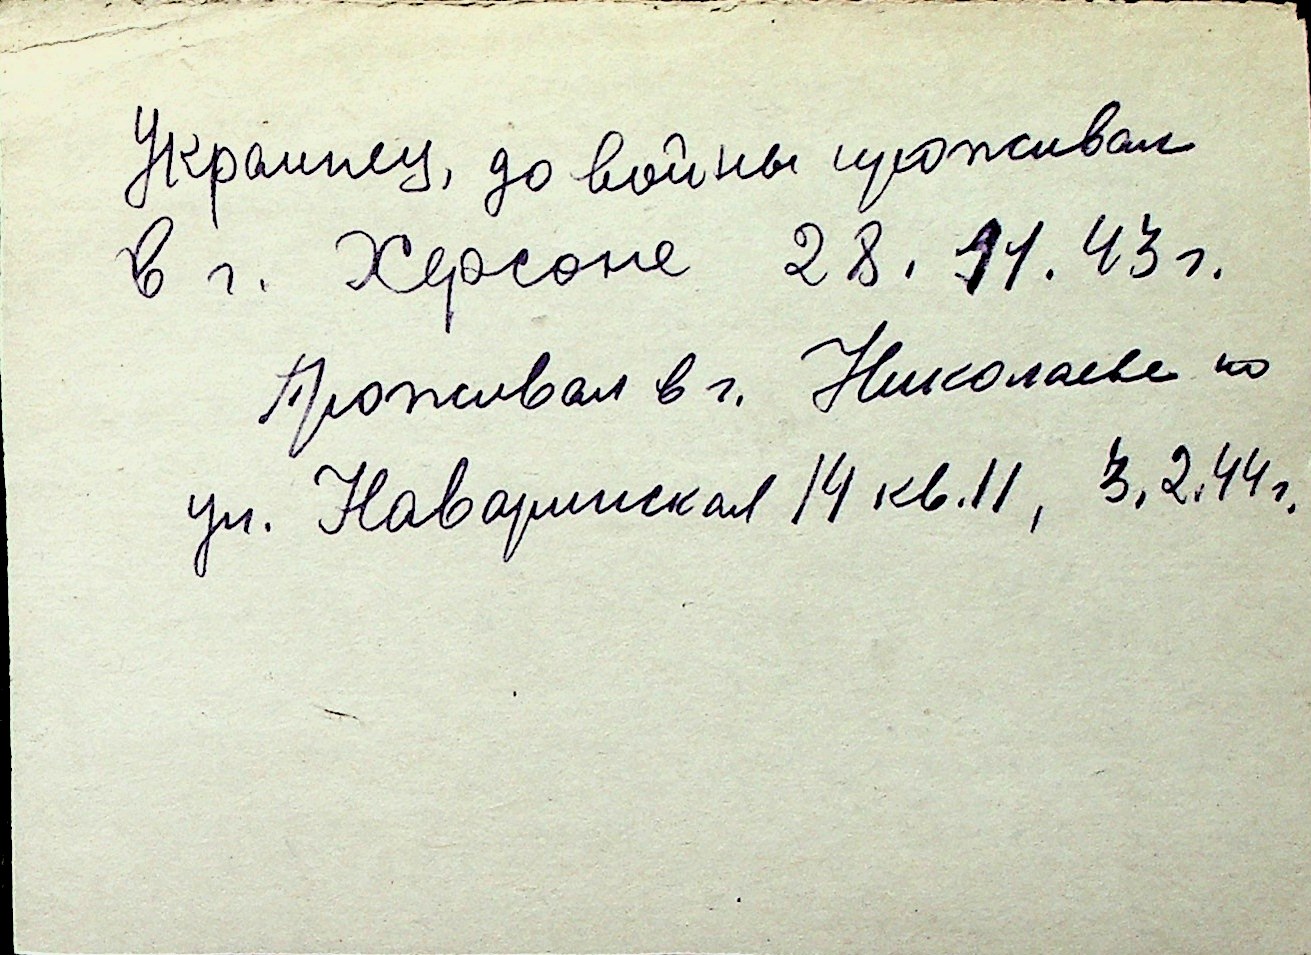 Украинец, до войны проживал
в г. Херсоне 28. 11. 43 г.
Проживал в г. Николаеве по
ул. Наваринская 14 кв. 11, 3. 2. 44 г.